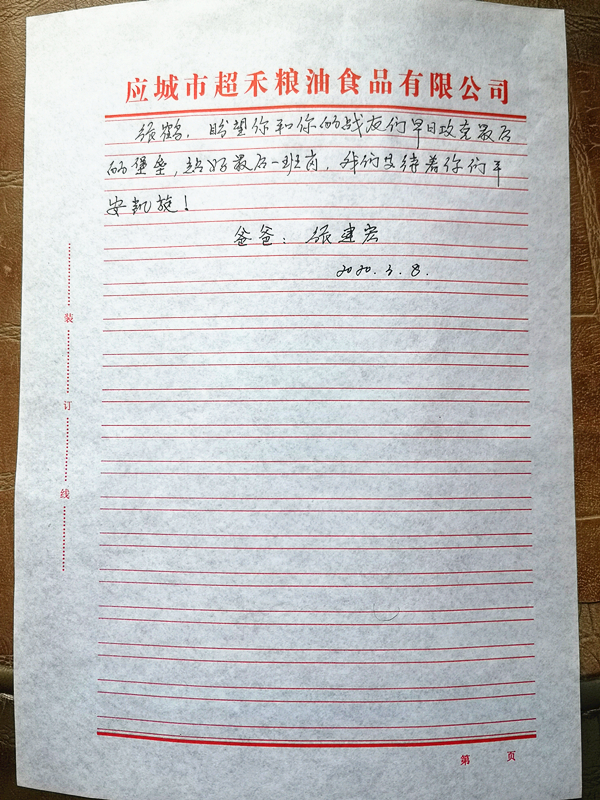 应城市超禾粮油食品有限公司
张鹤，盼望你和你的战友们早日攻克最后
的堡垒，站好最后一班岗，我们等待着你们平
安凯旋！
爸爸：张建宏
2020.3.8.
装
订
线
第 页